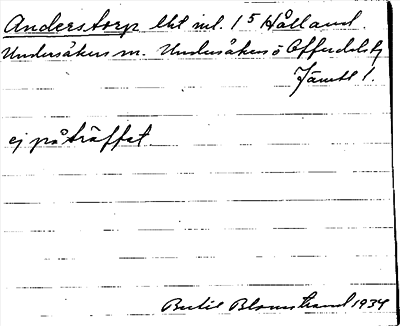 Anderstorp lht inl. 1⁵ Hålland.
Undersåkers sn. Undersåkers o Offerdals tg
Jämtl l.
ej påträffat.
Bertil Blomstrand 1934